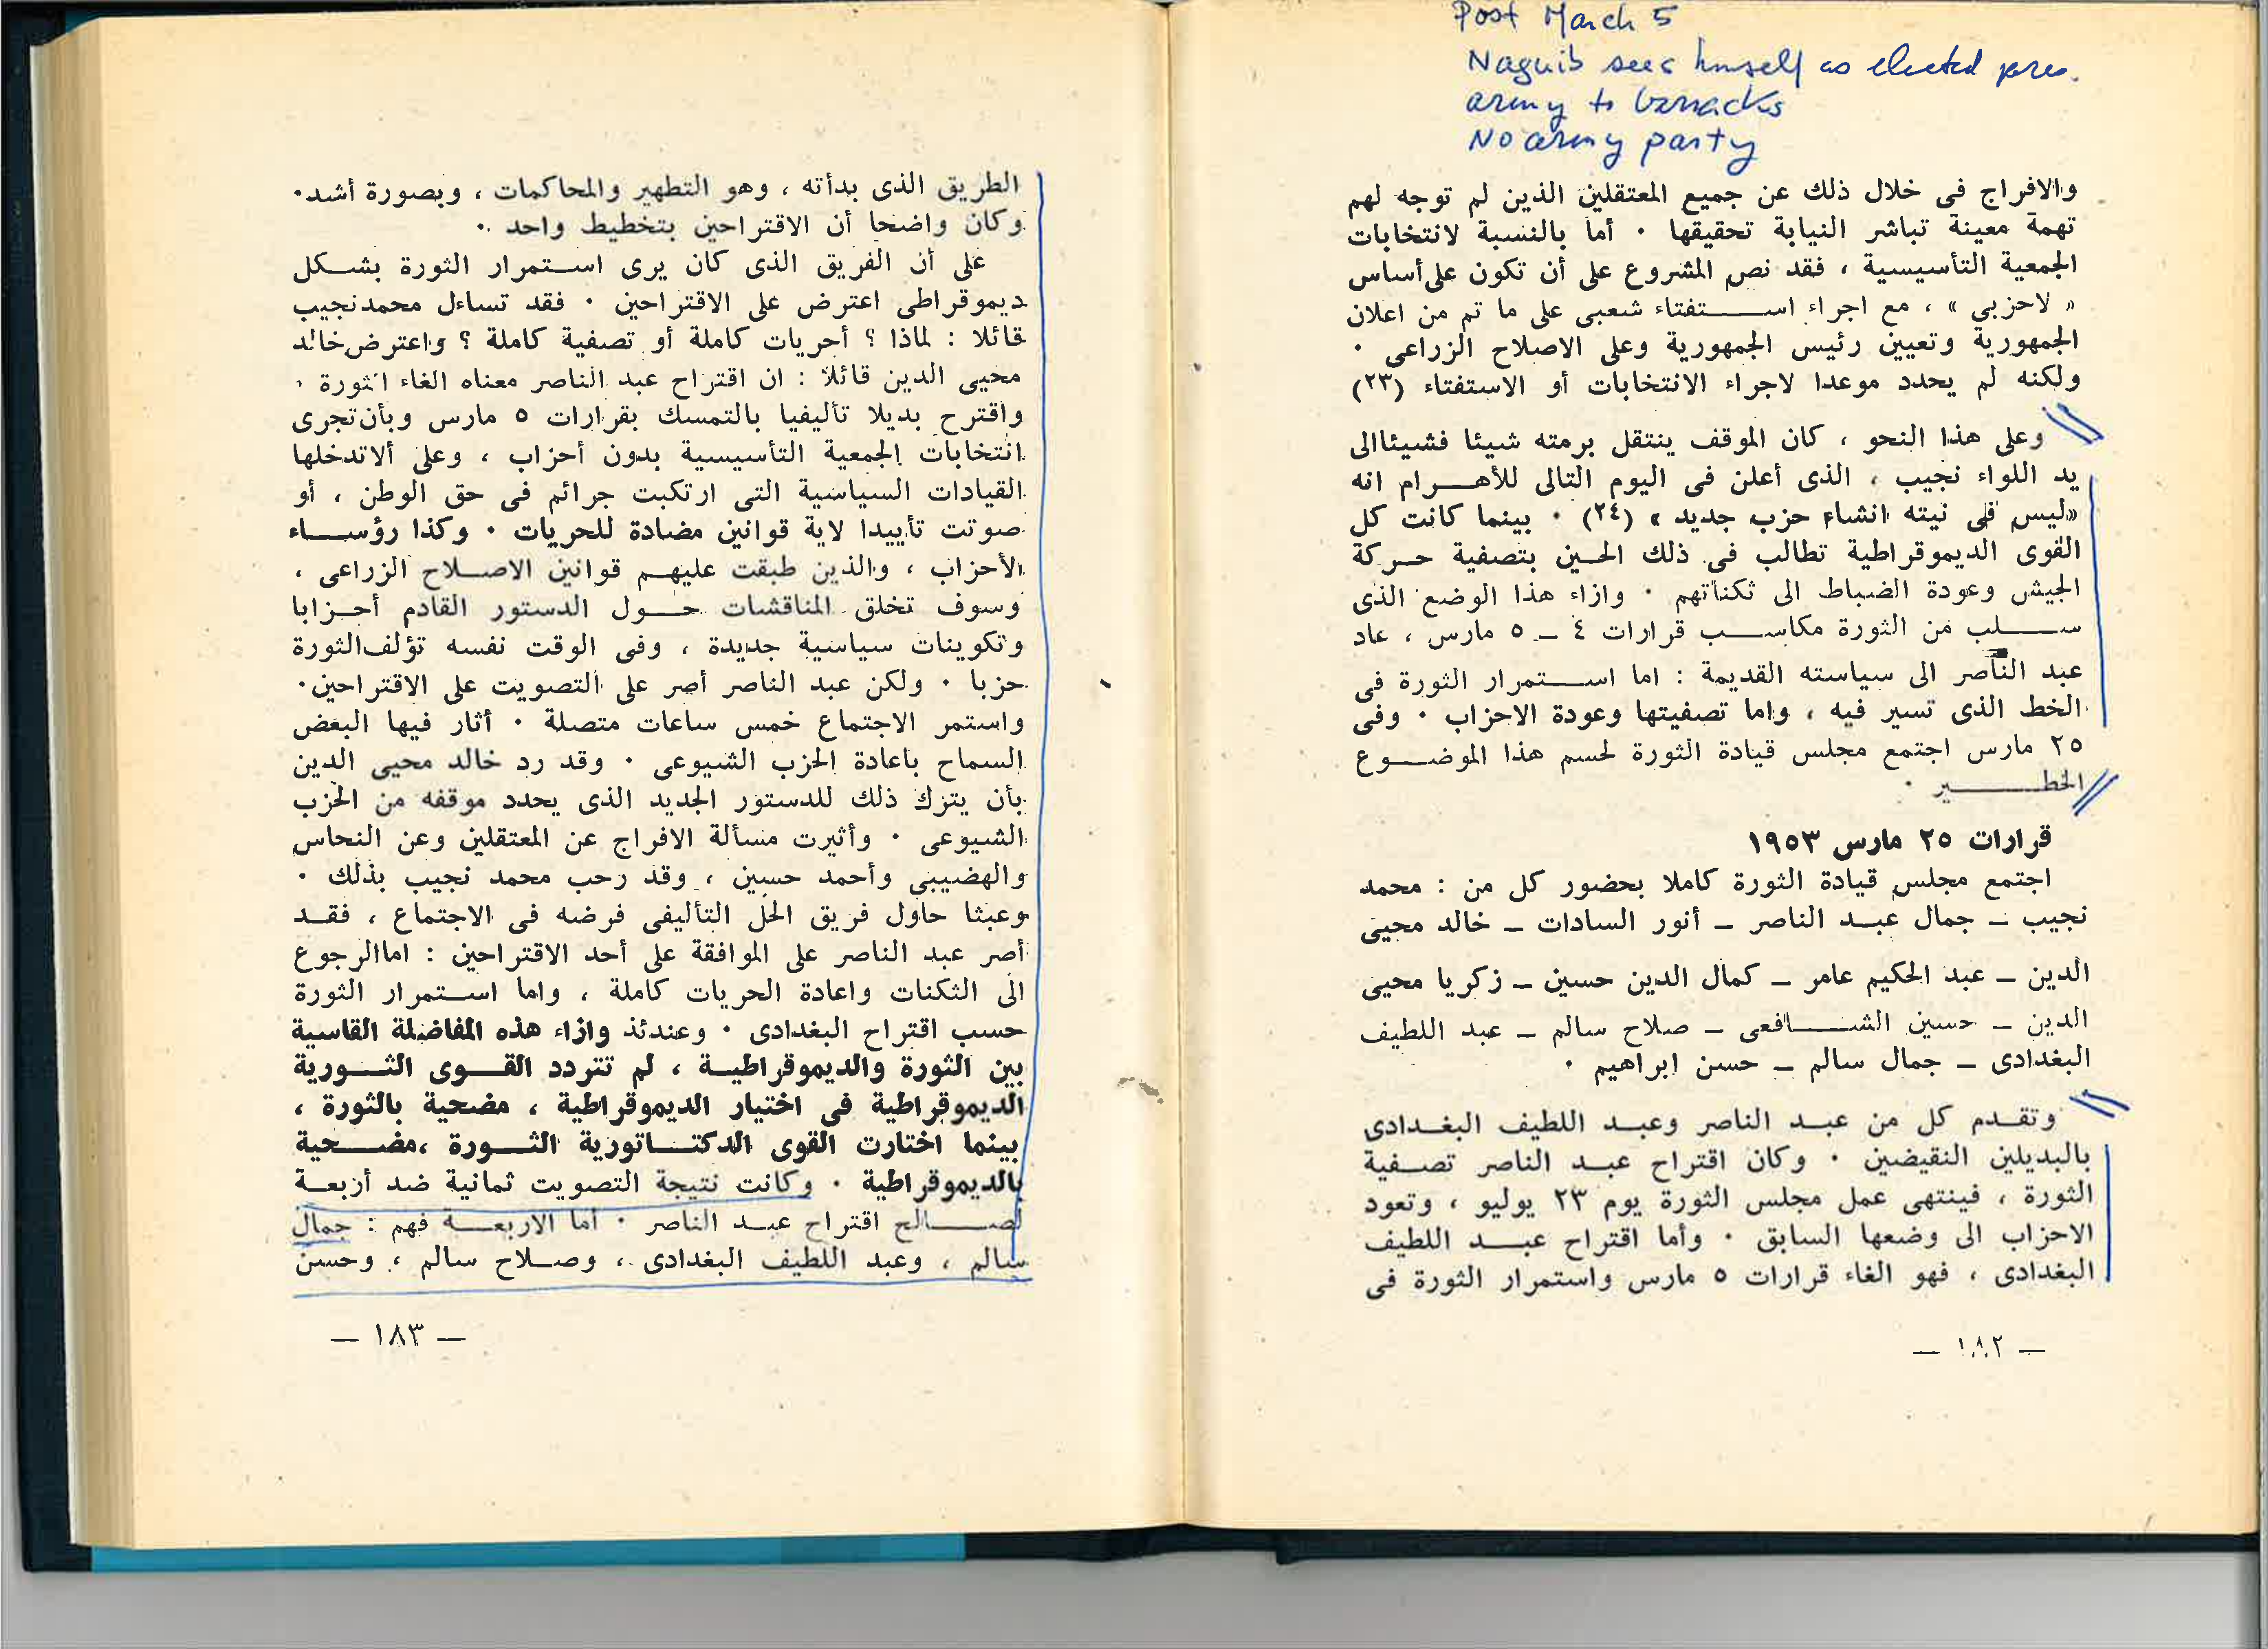 Post March 5
Naguib sees himself as elected pres.
army to barracks
No army party
والافراج فى خلال ذلك عن جميع المعتقلين الذين لم توجه لهم
تهمة معينة تباشر النيابة تحقيقها ٠ أما بالنسبة لانتخابات
الجمعية التأسيسية ، فقد نص المشروع على أن تكون على أساس
« لاحزبي » ، مع اجراء اســـتفتاء شعبى على ما تم من اعلان
الجمهورية وتعيين رئيس الجمهورية وعلى الاصلاح الزراعى ٠
ولكنه لم يحدد موعدا لاجراء الانتخابات أو الاستفتاء (٢٣)
وعلى هذا النحو ، كان الموقف ينتقل برمته شيئا فشيئا الى
يد اللواء نجيب ، الذى أعلن فى اليوم التالى للأهـــرام انه
«ليس فى نيته انشاء حزب جديد » (٢٤) ٠ بينما كانت كل
القوى الديموقراطية تطالب فى ذلك الحـين بتصفية حـــركة
الجيش وعودة الضباط الى ثكناتهم ٠ وازاء هذا الوضع الذى
ســـلب من الثورة مكاســـب قرارات ٤ ــ ٥ مارس ، عاد
عبد الناصر الى سياسته القديمة : اما اســـتمرار الثورة فى
الخط الذى تسير فيه ، واما تصفيتها وعودة الاحزاب ٠ وفى
٢٥ مارس اجتمع مجلس قيادة الثورة لحسم هذا الموضـــوع
الخطـــــير ٠
قرارات ٢٥ مارس ١٩٥٣
اجتمع مجلس قيادة الثورة كاملا بحضور كل من : محمد
نجيب ــ جمال عبـد الناصر ــ أنور السادات ــ خالد محيى
الدين ــ عبد الحكيم عامر ــ كمال الدين حسين ــ زكريا محيى
الدين ــ حسين الشـــافعى ــ صلاح سالم ــ عبد اللطيف
البغدادى ــ جمال سالم ــ حسن ابراهيم ٠
وتقـدم كل من عبـد الناصر وعبـد اللطيف البغـدادى
بالبديلين النقيضين ٠ وكان اقتراح عبـد الناصر تصـفية
الثورة ، فينتهى عمل مجلس الثورة يوم ٢٣ يوليو ، وتعود
الاحزاب الى وضعها السابق ٠ وأما اقتراح عبـــد اللطيف
البغدادى ، فهو الغاء قرارات ٥ مارس واستمرار الثورة فى
— ١٨٢ —
الطريق الذى بدأته ، وهو التطهير والمحاكمات ، وبصورة أشد٠
وكان واضحا أن الاقتراحين بتخطيط واحد ٠
على أن الفريق الذى كان يرى اســـتمرار الثورة بشـــكل
ديموقراطى اعترض على الاقتراحين ٠ فقد تساءل محمد نجيب
قائلا : لماذا ؟ أحريات كاملة أو تصفية كاملة ؟ واعترض خالد
محيى الدين قائلا : ان اقتراح عبد الناصر معناه الغاء الثورة ،
واقترح بديلا تأليفيا بالتمسك بقرارات ٥ مارس وبأن تجرى
انتخابات الجمعية التأسيسية بدون أحزاب ، وعلى ألا تدخلها
القيادات السياسية التى ارتكبت جرائم فى حق الوطن ، أو
صوتت تأييدا لاية قوانين مضادة للحريات ٠ وكذا رؤســـاء
الأحزاب ، والذين طبقت عليهـم قوانين الاصـلاح الزراعى ،
وسوف تخلق المناقشات حـــول الدستور القادم أحـــزابا
وتكوينات سياسية جديدة ، وفى الوقت نفسه تؤلف الثورة
حزبا ٠ ولكن عبد الناصر أصر على التصويت على الاقتراحين٠
واستمر الاجتماع خمس ساعات متصلة ٠ أثار فيها البعض
السماح باعادة الحزب الشيوعى ٠ وقد رد خالد محيى الدين
بأن يترك ذلك للدستور الجديد الذى يحدد موقفه من الحزب
الشيوعى ٠ وأثيرت مسألة الافراج عن المعتقلين وعن النحاس
والهضيبى وأحمد حسين ، وقد رحب محمد نجيب بذلك ٠
وعبثا حاول فريق الحل التأليفى فرضه فى الاجتماع ، فقـد
أصر عبد الناصر على الموافقة على أحد الاقتراحين : اما الرجوع
الى الثكنات واعادة الحريات كاملة ، واما اســـتمرار الثورة
حسب اقتراح البغدادى ٠ وعندئذ وازاء هذه المفاضلة القاسية
بين الثورة والديموقراطيـة ، لم تتردد القـــوى الثـــورية
الديموقراطية فى اختيار الديموقراطية ، مضحية بالثورة ،
بينما اختارت القوى الدكتـــاتورية الثـــورة ،مضـــحية
بالديموقراطية ٠ وكانت نتيجة التصويت ثمانية ضد أربعـة
لصـــالح اقتراح عبـد الناصر ٠ أما الاربعـــة فهم : جمال
سالم ، وعبد اللطيف البغدادى ، وصـلاح سالم ، وحسن
— ١٨٣ —